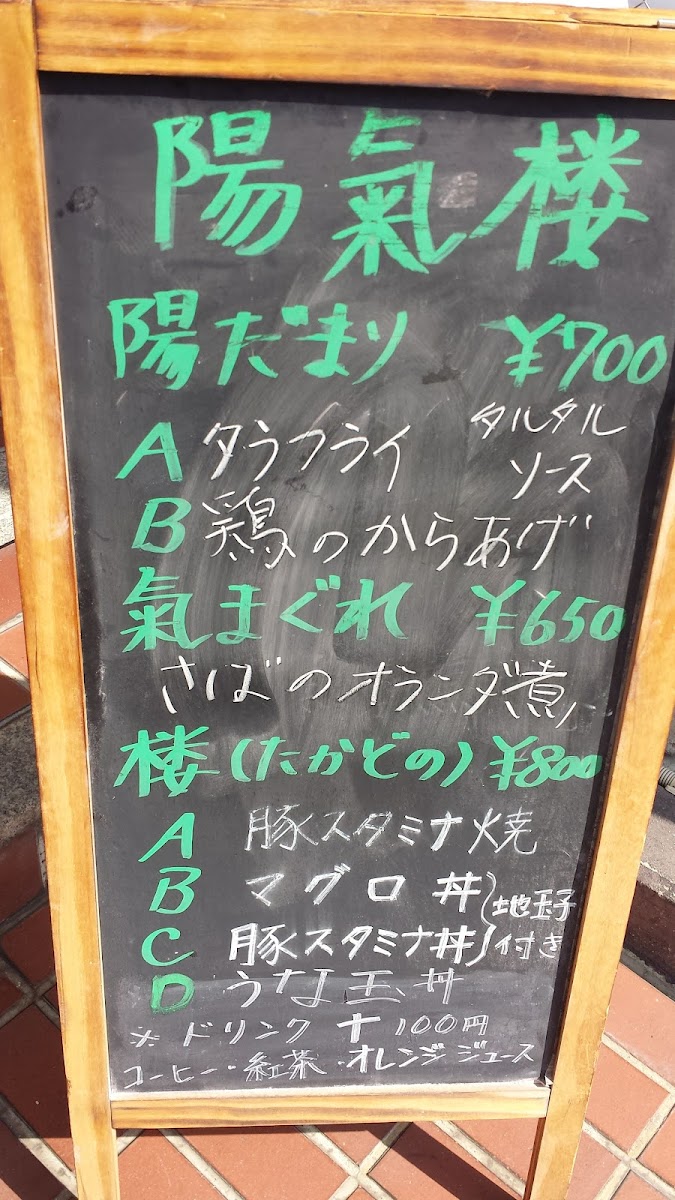 陽氣楼
陽だまり ¥700
A タラフライ タルタル
ソース
B 鶏のからあげ
氣まぐれ ¥650
さばのオランダ煮
楼(たかどの) ¥800
A 豚スタミナ焼
B マグロ丼
C 豚スタミナ丼
地玉子
付き
D うな玉丼
※ドリンク +100円
コーヒー・紅茶・オレンジジュース